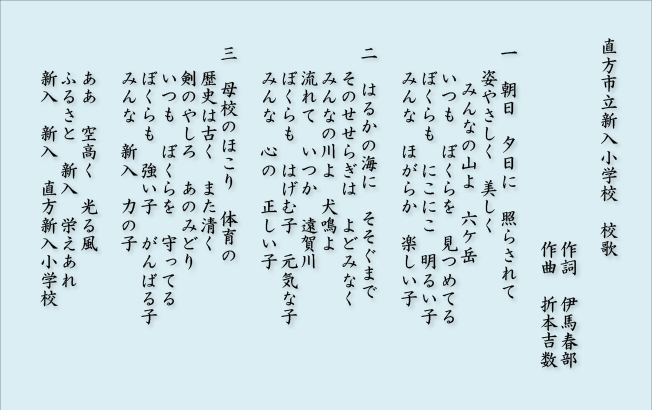 直方市立新入小学校　校歌
作詞　伊馬春部
作曲　折本吉数
一　朝日　夕日に　照らされて
姿やさしく　美しく
みんなの山よ　六ケ岳
いつも　ぼくらを　見つめてる
ぼくらも　にこにこ　明るい子
みんな　ほがらか　楽しい子
二　はるかの海に　そそぐまで
そのせせらぎは　よどみなく
みんなの川よ　犬鳴よ
流れて　いつか　遠賀川
ぼくらも　はげむ子　元気な子
みんな　心の　正しい子
三　母校のほこり　体育の
歴史は古く　また清く
剣のやしろ　あのみどり
いつも　ぼくらを　守ってる
ぼくらも　強い子　がんばる子
みんな　新入　力の子
ああ　空高く　光る風
ふるさと　新入　栄えあれ
新入　新入　直方新入小学校